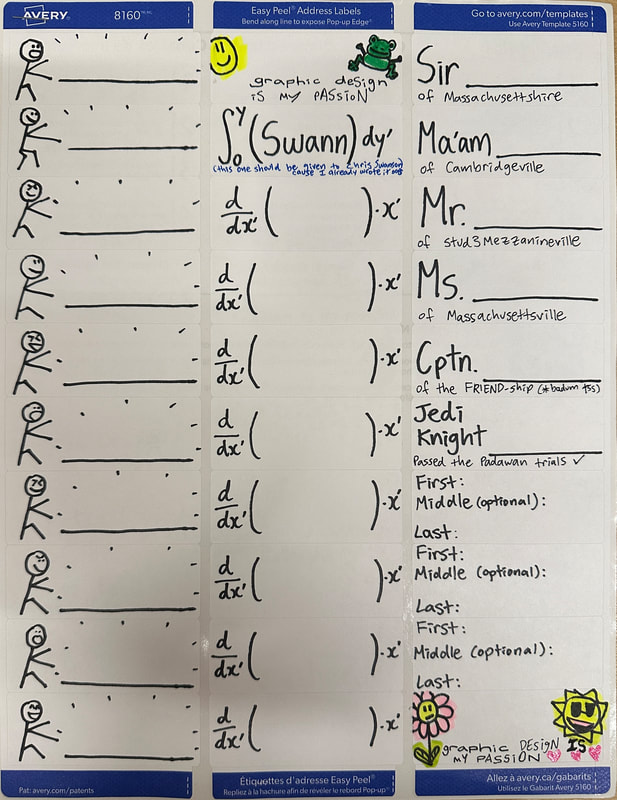 AVERY 8160
Easy Peel® Address Labels
Bend along line to expose Pop-up Edge®
Go to avery.com/templates
Use Avery Template 5160
graphic design
IS MY PASSION
∫₀ʸ (Swann) dy'
(this one should be given to Chris Swanson
cause I already wrote it out)
d/dx' ( ) · x'
d/dx' ( ) · x'
d/dx' ( ) · x'
d/dx' ( ) · x'
d/dx' ( ) · x'
d/dx' ( ) · x'
d/dx' ( ) · x'
d/dx' ( ) · x'
Sir
of Massachusettshire
Ma'am
of Cambridgeville
Mr.
of Stud3Mezzanineville
Ms.
of Massachusettsville
Cptn.
of the FRIEND-ship (*badum tss)
Jedi
Knight
Passed the Padawan trials ✓
First:
Middle (optional):
Last:
First:
Middle (optional):
Last:
First:
Middle (optional):
Last:
graphic DESIGN IS
MY PASSION
Pat: avery.com/patents
Étiquettes d'adresse Easy Peel®
Repliez à la hachure afin de révéler le rebord Pop-up®
Allez à avery.ca/gabarits
Utilisez le Gabarit Avery 5160